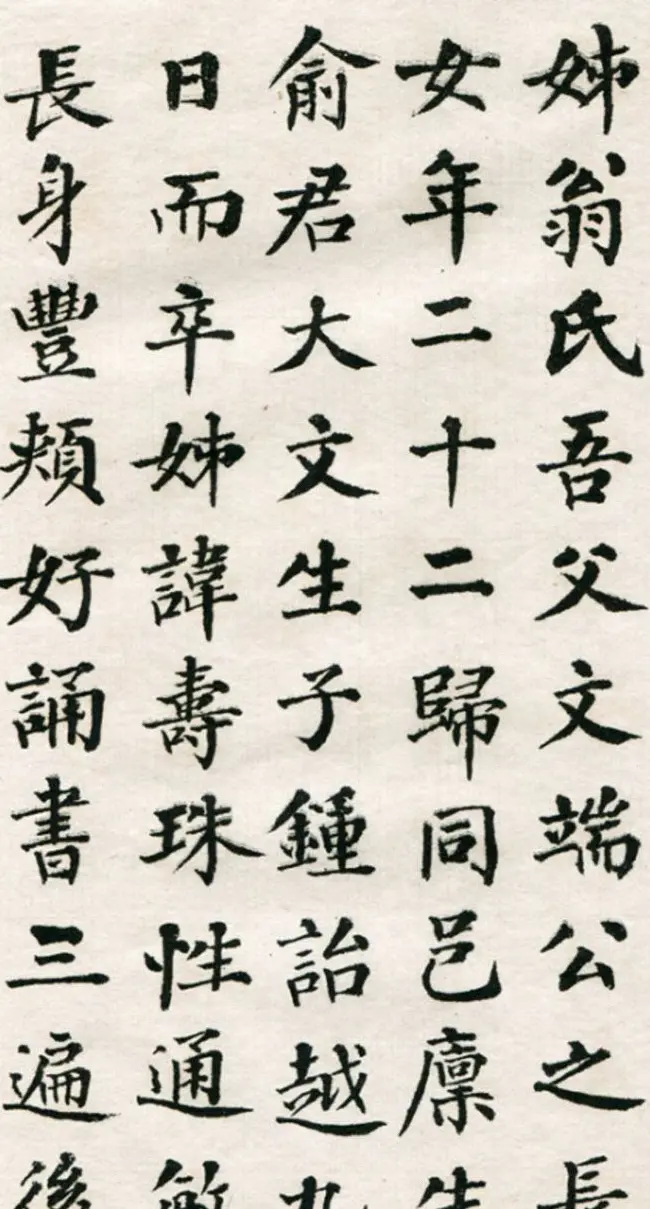 姊翁氏吾父文端公之長
女年二十二歸同邑廪生
俞君大文生子鍾詒越九
日而卒姊諱壽珠性通敏
長身豐頰好誦書三遍後